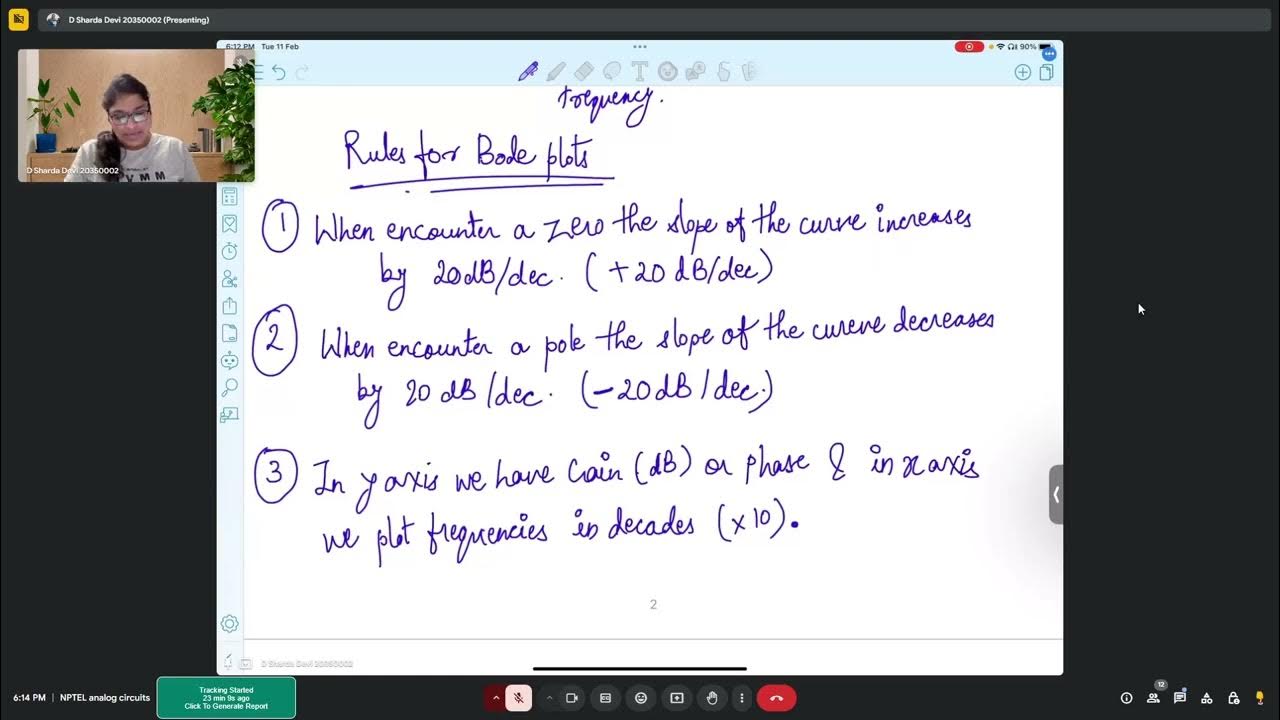 D Sharda Devi 20350002 (Presenting)
6:12 PM Tue 11 Feb
90%
D Sharda Devi 20350002
frequency.
Rules for Bode plots
1 When encounter a zero the slope of the curve increases
by 20dB/dec. (+20 dB/dec)
2 When encounter a pole the slope of the cureve decreases
by 20 dB/dec. (-20dB/dec.)
3 In y axis we have Gain (dB) or phase & in x axis
we plot frequencies in decades (x10).
2
D Sharda Devi 20350002
6:14 PM | NPTEL analog circuits
Tracking Started
23 min 9s ago
Click To Generate Report
12